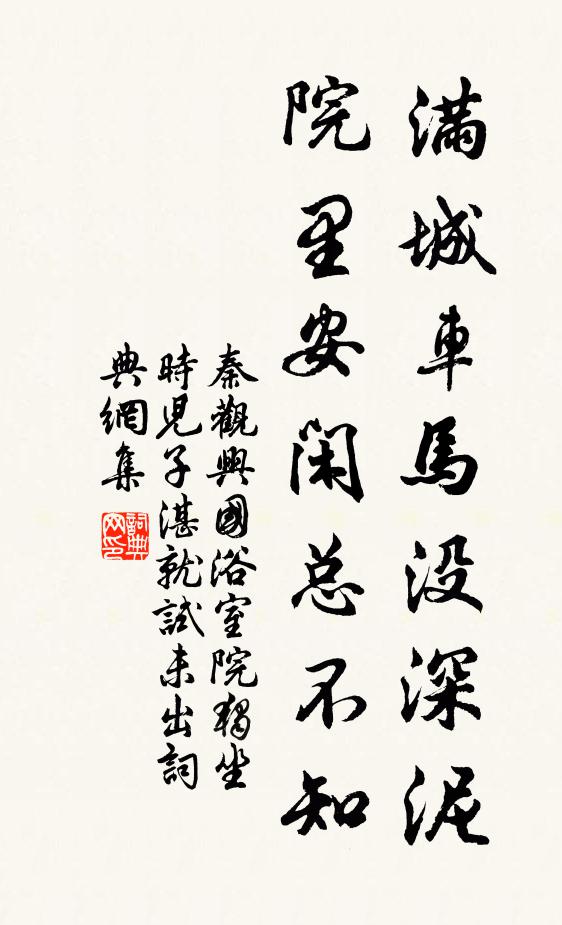 滿城車馬没深泥
院里安閑总不知
秦觀興國浴室院獨坐
時児子湛就試未出詞
典網集
詞典
网印